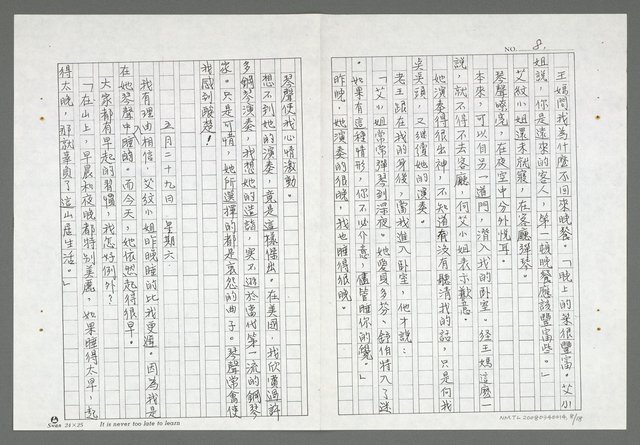 NO. 8.
王媽問我為什麼不回來晚餐。「晚上的菜很豐富。艾小
姐說，你是遠來的客人，第一頓晚餐應該豐富些。」
艾紋小姐還未就寢，在客廳彈琴。
琴聲嘹亮，在夜空中分外悅耳。
本來，可以自另一道門，潛入我的卧室。經王媽這麼一
說，就不得不去客廳，向艾小姐表示歉意。
她演奏得很出神，不知道有沒有聽清我的話，只是向我
笑笑頭，又繼續她的演奏。
老王跟在我的身後，當我進入卧室，他才說：
「艾小姐常常彈琴到深夜。她愛貝多芬、舒伯特入了迷
。如果有這種情形，你不必介意，儘管睡你的覺。」
昨晚，她演奏的很晚，我也睡得很晚。
琴聲使我心情激動。
想不到她的演奏，竟是這樣傑出。在美國，我欣賞過許
多鋼琴演奏，我想她的造詣，実不遜於當代第一流的鋼琴
家。只是可惜，她所選擇的都是哀怨的曲子。琴聲常會使
我感到酸楚！
五月二十九日　星期六
我有理由相信，艾紋小姐昨晚睡的比我更遲。因為我是
在她琴聲中入睡的。而今天，她依然起得很早。
大家都有早起的習慣，我怎好例外？
「在山上，早晨和夜晚都特別美麗，如果睡得太早，起
得太晚，那就辜負了這山居生活。」
Swan 24×25 It is never too late to learn
NMTL20080340014,8/18